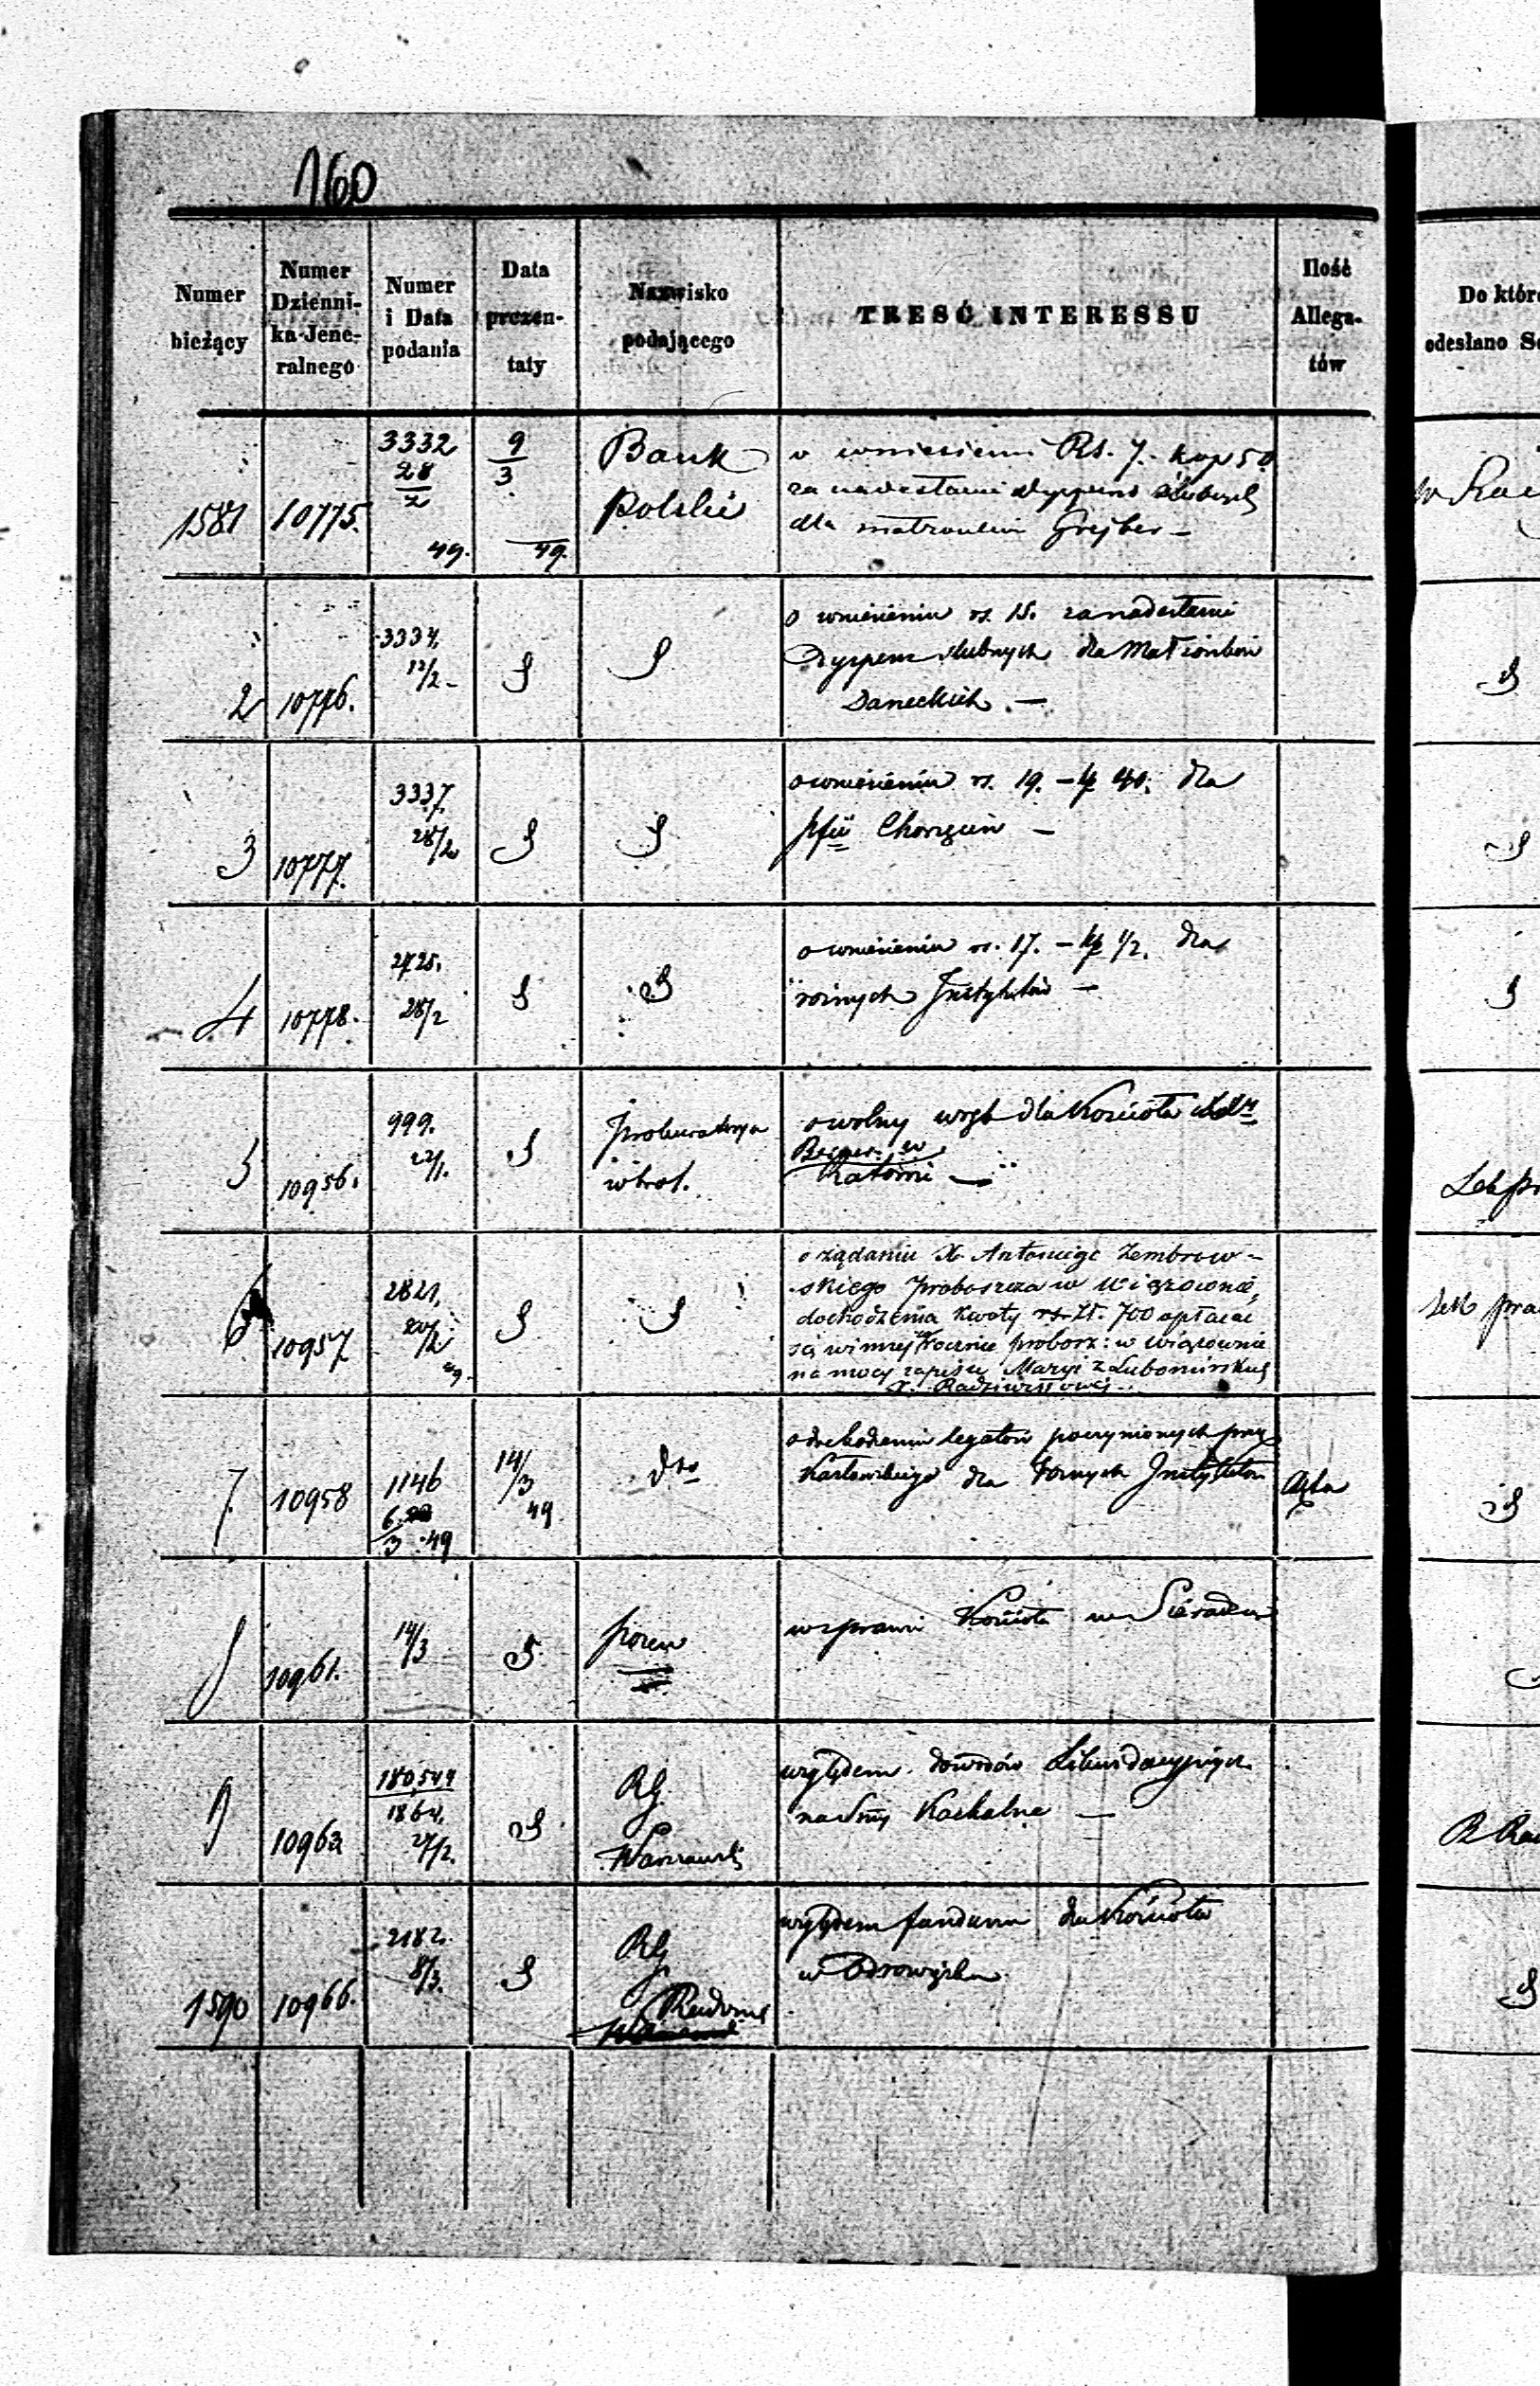 160
Numer bieżący
Numer Dzienni-ka Jene-ralnego
Numer i Data podania
Data prezen-taty
Nazwisko podającego
TREŚĆ INTERESSU
Ilość Allega-tów
Do które
odesłano Se
1581 10775. 3332 28/2 49. 9/3 49. Bank Polski
o wniesieniu Rs. 7. kop 50
za nadesłanie dyspens ślubnych
dla małżonków Grejber —
2 10776. 3334. 12/2 –
o wniesieniu rs. 15. za nadesłanie
Dyspens ślubnych dla Małżonków
Daneckich. —
3 10777. 3337. 28/2
o wniesieniu rs. 19. – kp 40. dla
—
4 10778. 2725. 28/2
o wniesieniu rs. 17. – kp 1/2. dla
różnych Instytutów —
5 10956. 999. 22/1. Prokuratorya
w Król.
o wolny dla Kościoła
—
Lek pr
6 10957 2821. 20/2 49.
o żądaniu X. Antoniego Zembrow-
skiego Proboszcza w Wiązownie,
dochodzenia kwoty Zł. 700 opłacać
się winnej rocznie probosz: w Wiązownie
na mocy zapisu Maryi z Lubomirskich
X. Radziwiłłowej
Lek pra
7. 10958 1146 6/3 49 14/3 49 dto
o dochodzeniu legatów poczynionych przez
dla różnych Instytutów
Akta
8 10961. 14/3
w sprawie Kościoła w Sieradzu
9 10963 180,544 1864. 27/2. RG. Warszawski
względem dowodów Likwidacyjnych
na
1590 10966. 2182. 8/3. RG Radoms
względem funduszu dla Kościoła
w Odrowążu